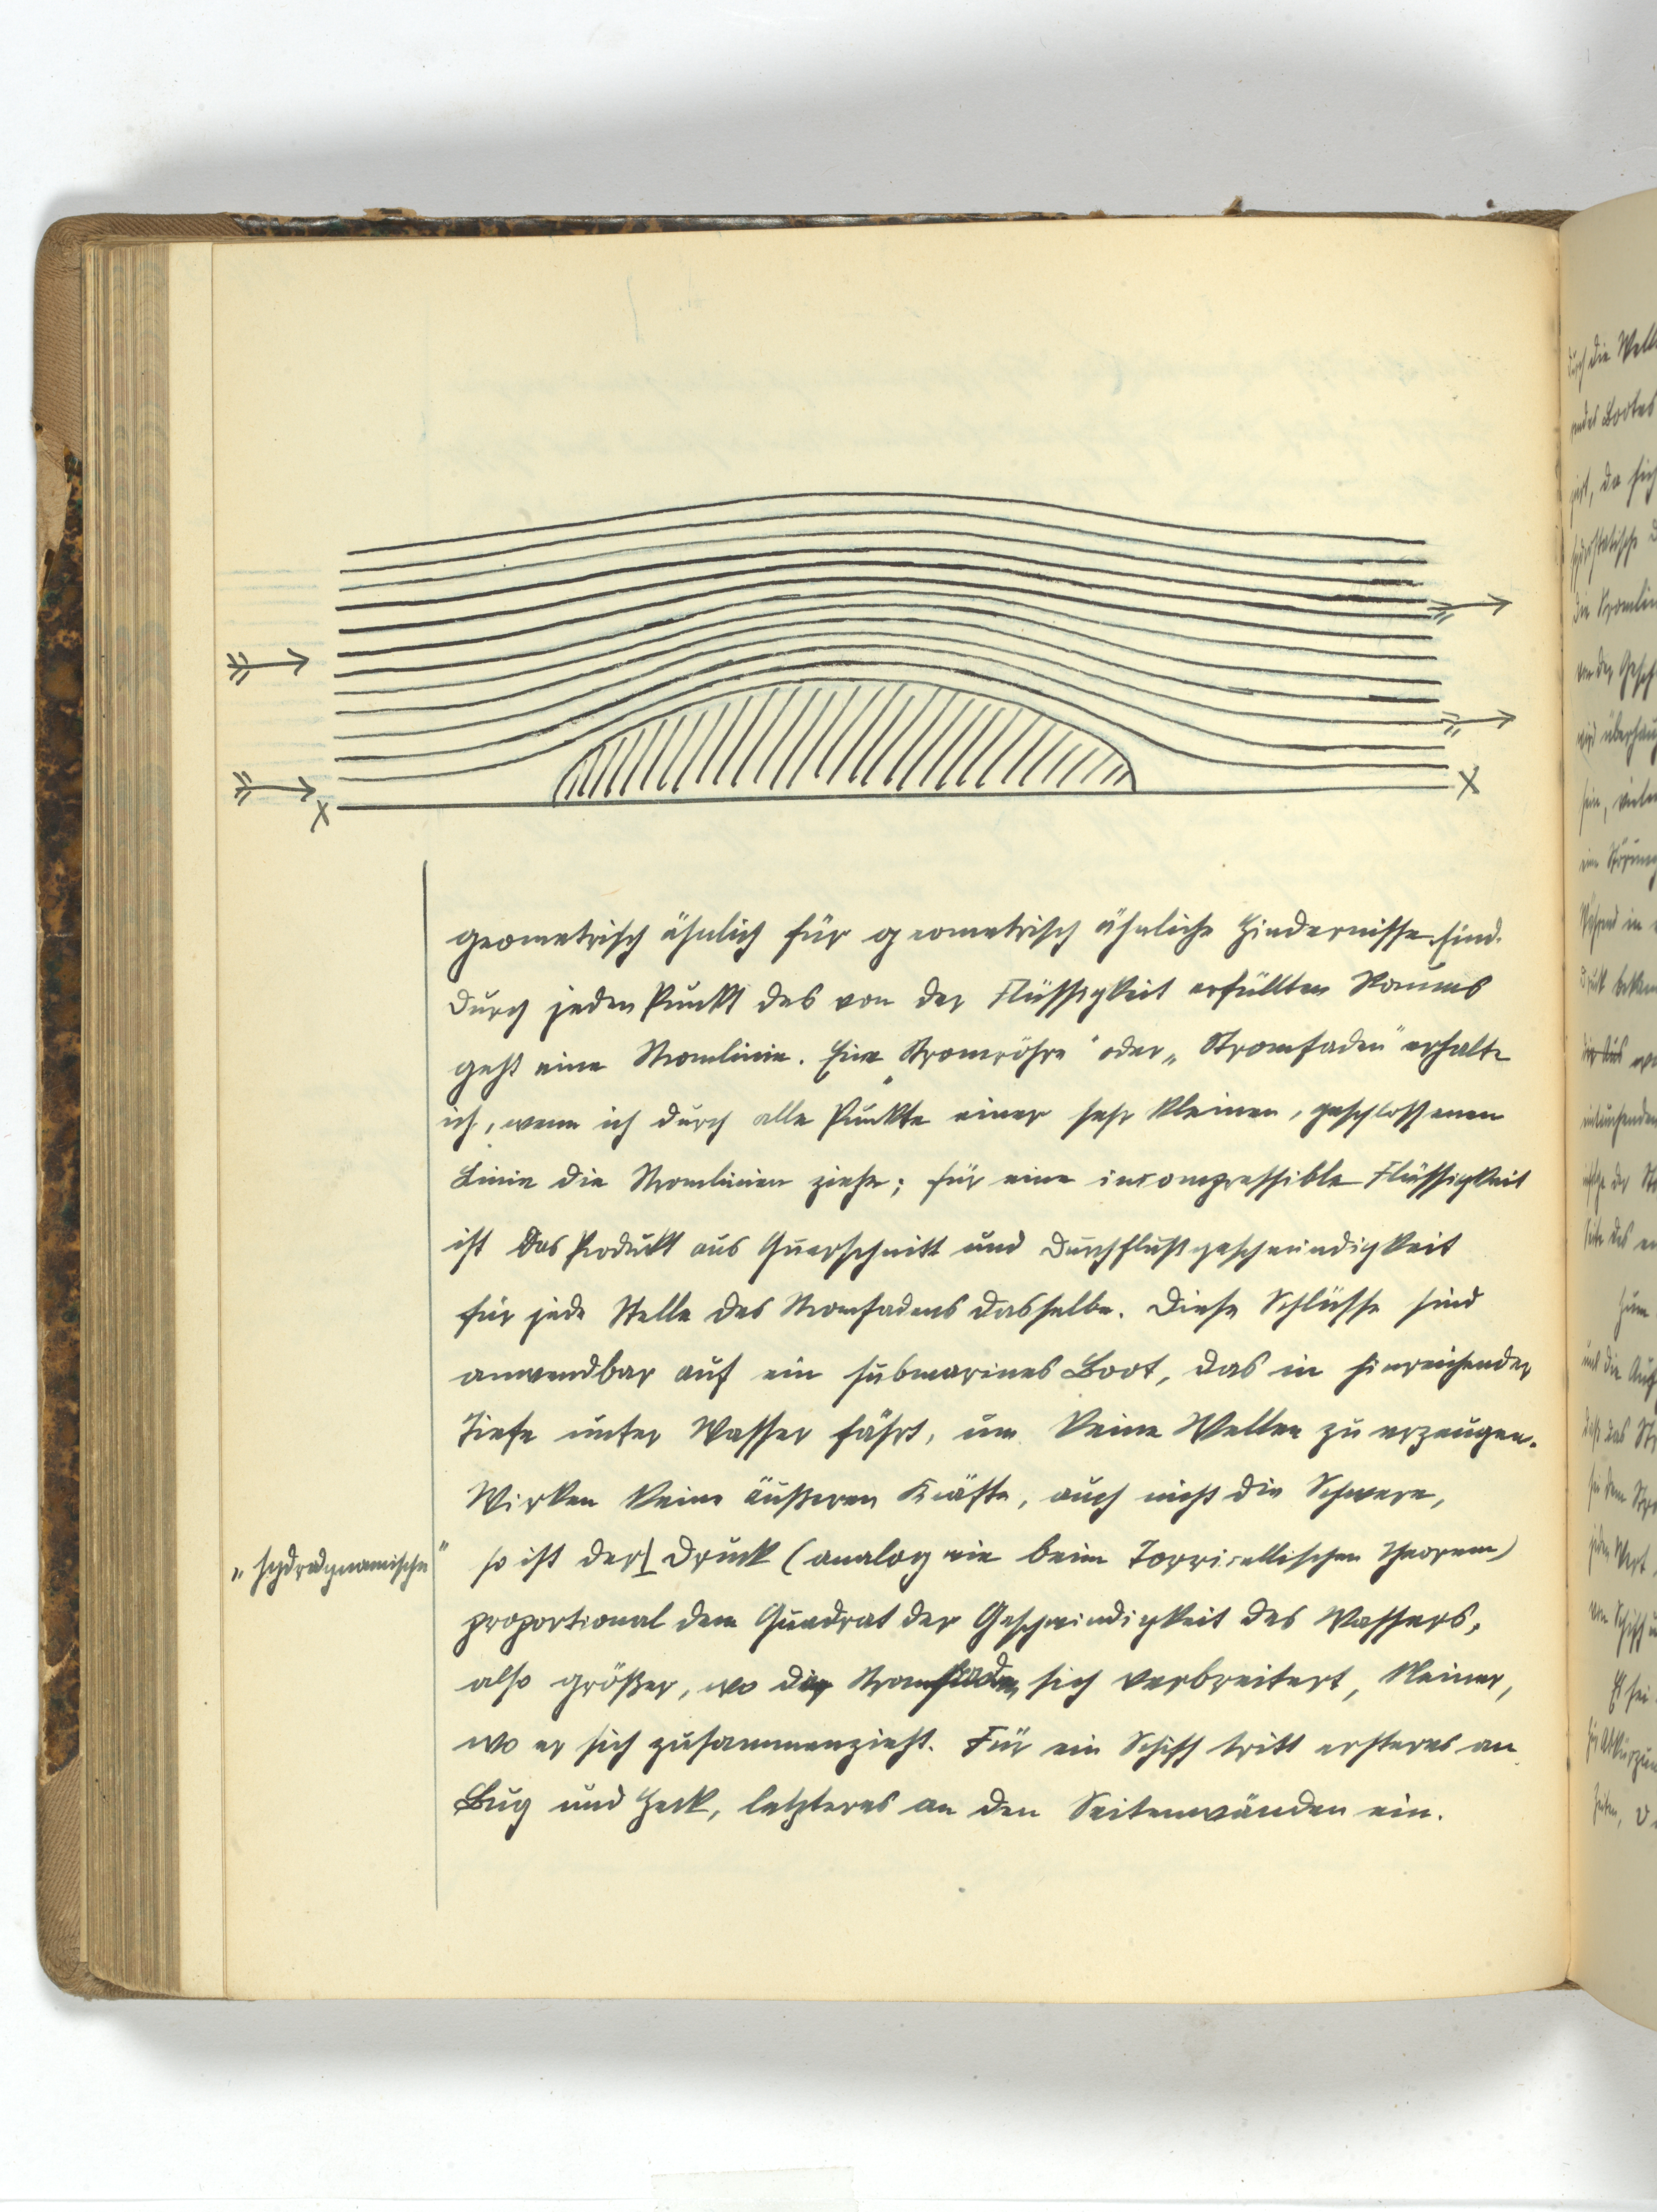 X
X
geometrisch ähnlich für geometrisch ähnliche Hindernisse sind.
Durch jeden Punkt des von der Flüssigkeit erfüllten Raumes
geht eine Stromlinie. Eine „Stromröhre" oder „Stromfaden" erhalte
ich, wenn ich durch alle Punkte einer sehr kleinen, geschlossenen
Linie die Stromlinien ziehe; für eine incompressible Flüssigkeit
ist das Produkt aus Querschnitt und Durchflußgeschwindigkeit
für jede Stelle des Stromfadens dasselbe. Diese Schlüsse sind
anwendbar auf ein submarines Boot, das in hinreichender
Tiefe unter Wasser fährt, um keine Wellen zu erzeugen.
Wirken keine äußeren Kräfte, auch nicht die Schwere,
„hydrodynamische"
so ist der Druck (analog wie beim Torricellischen Theorem)
proportional dem Quadrat der Geschwindigkeit des Wassers,
also größer, wo der Stromfaden sich verbreitert, kleiner,
wo er sich zusammenzieht. Für ein Schiff tritt ersteres an
Bug und Heck, letzteres an den Seitenwänden ein.
durch die
endes Bootes
da sich
hydrostatische
die Stromlin
von der
wird
sein,
eine Störung
Während in
Druck
der
Zum
und die
daß das
bei dem
jeden Wert
vom Schiff
Es sei